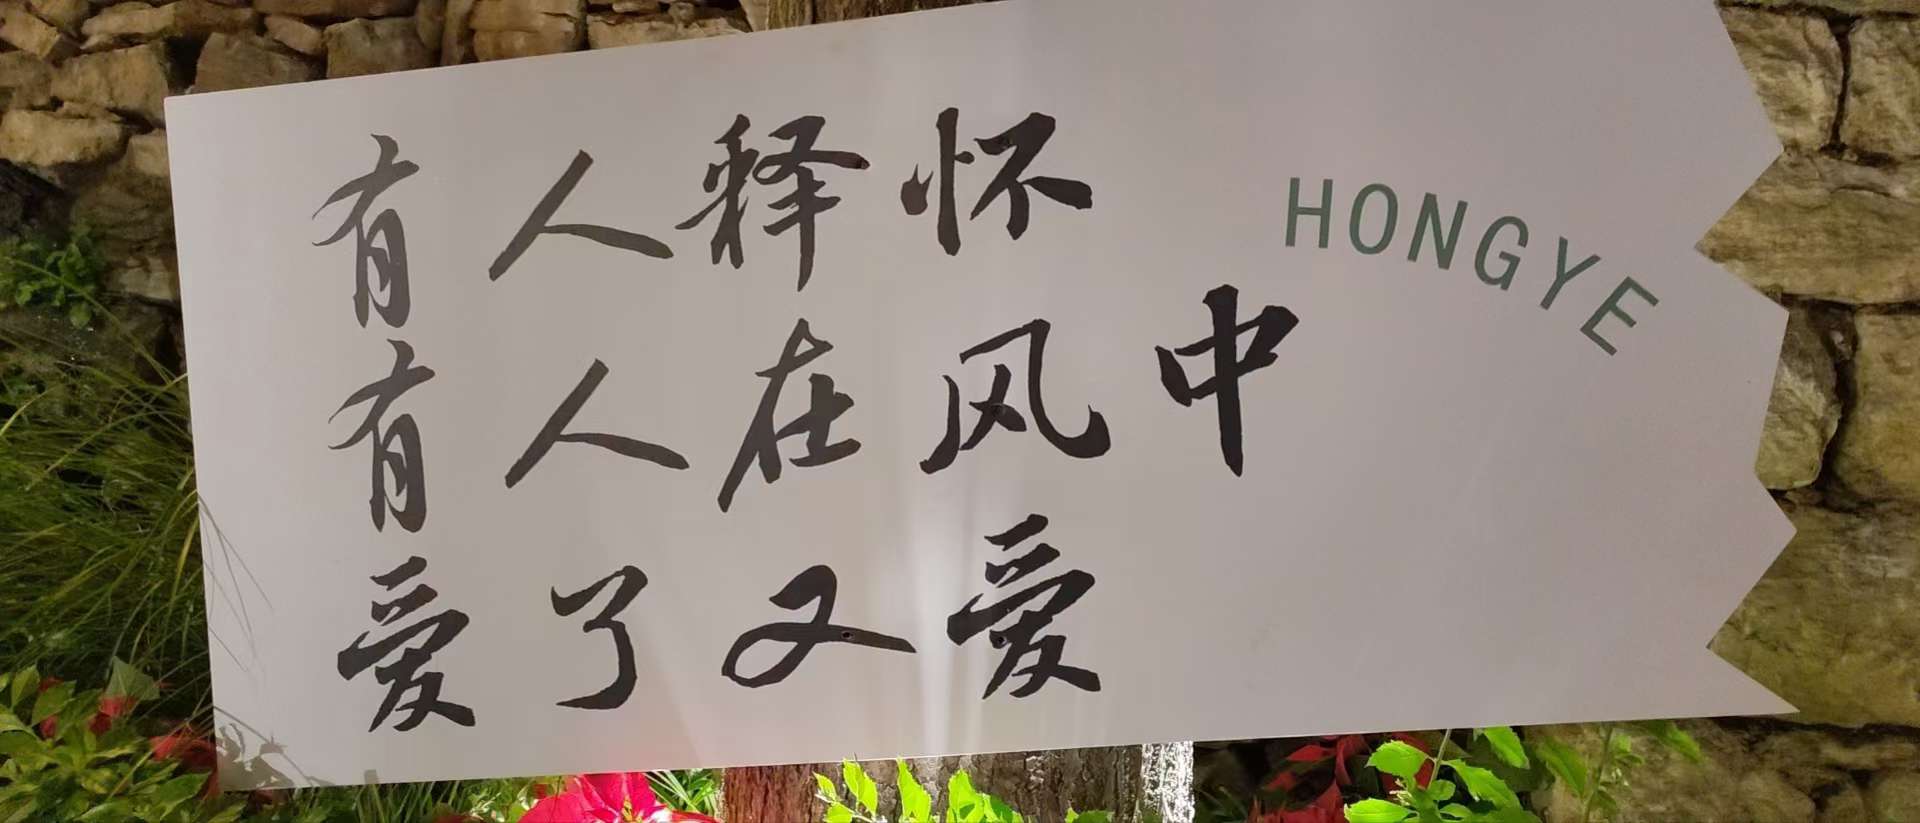 有人释怀
有人在风中
爱了又爱
HONGYE